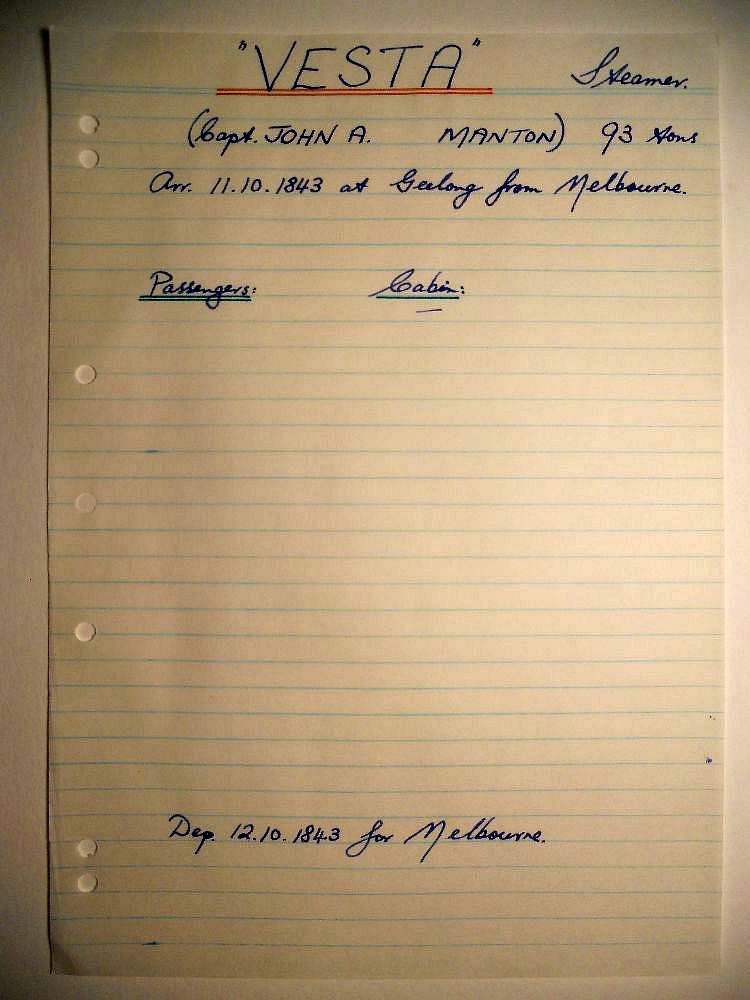 "VESTA" Steamer.
(Capt. JOHN A. MANTON) 93 tons
Arr. 11.10.1843 at Geelong from Melbourne.
Passengers: Cabin:
—
Dep. 12.10.1843 for Melbourne.